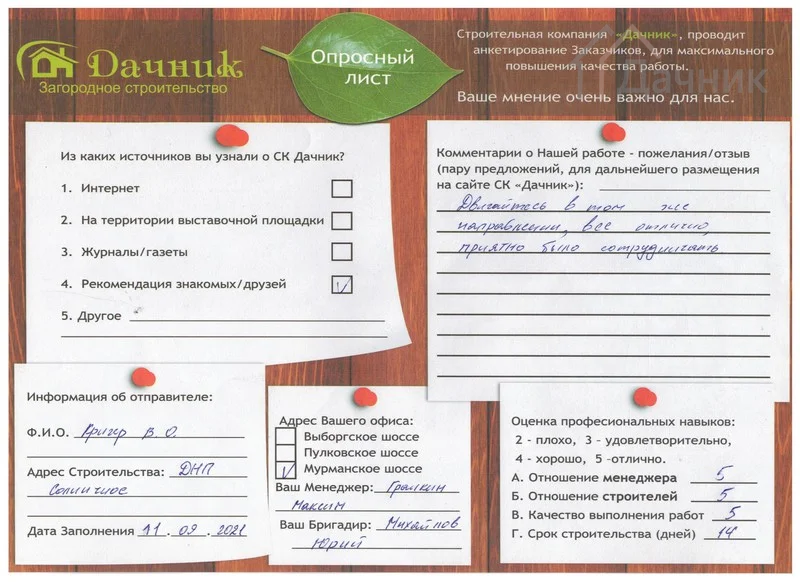 Дачник
Загородное строительство
Опросный
лист
Строительная компания «Дачник», проводит
анкетирование Заказчиков, для максимального
повышения качества работы.
Дачник
Ваше мнение очень важно для нас.
Из каких источников вы узнали о СК Дачник?
1. Интернет
2. На территории выставочной площадки
3. Журналы/газеты
4. Рекомендация знакомых/друзей
5. Другое
Комментарии о Нашей работе - пожелания/отзыв
(пару предложений, для дальнейшего размещения
на сайте СК «Дачник»):
Двигайтесь в том же
направлении, все отлично,
приятно было сотрудничать
Информация об отправителе:
Ф.И.О. Кригер В.О.
Адрес Строительства: ДНП
Солнечное
Дата Заполнения 11.09.2021
Адрес Вашего офиса:
Выборгское шоссе
Пулковское шоссе
Мурманское шоссе
Ваш Менеджер:
Максим
Ваш Бригадир: Михайлов
Юрий
Оценка професиональных навыков:
2 - плохо, 3 - удовлетворительно,
4 - хорошо, 5 -отлично.
А. Отношение менеджера 5
Б. Отношение строителей 5
В. Качество выполнения работ 5
Г. Срок строительства (дней) 14